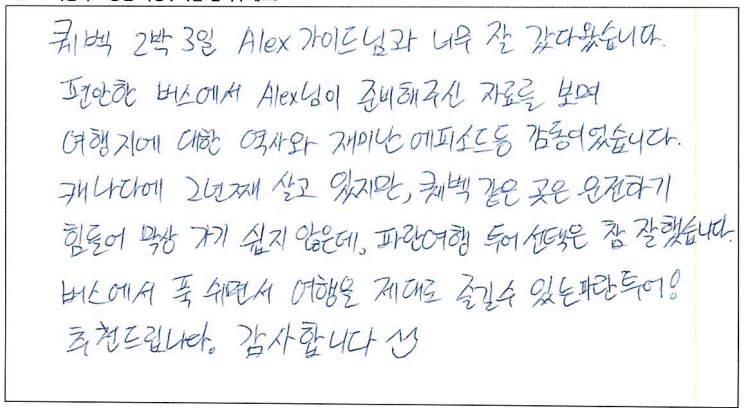 퀘벡 2박 3일 Alex 가이드님과 너무 잘 갔다왔습니다.
편안한 버스에서 Alex님이 준비해주신 자료를 보며
여행지에 대한 역사와 재미난 에피소드등 감동이었습니다.
캐나다에 2년째 살고 있지만, 퀘벡 같은 곳은 운전하기
힘들어 막상 가기 쉽지 않은데, 파란여행 투어 선택은 참 잘했습니다.
버스에서 푹 쉬면서 여행을 제대로 즐길수 있는 파란투어!
추천드립니다. 감사합니다